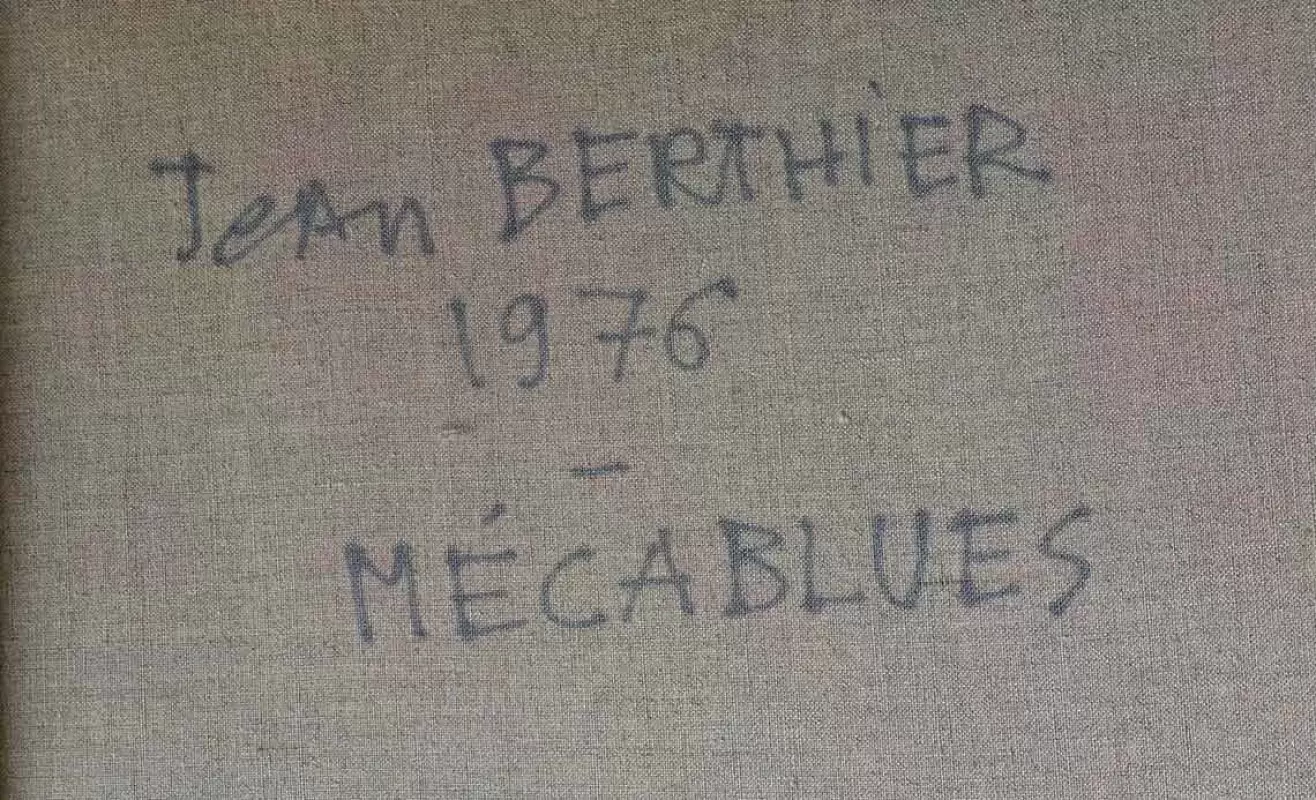 Jean BERTHiER
1976
-
MÉCABLUES